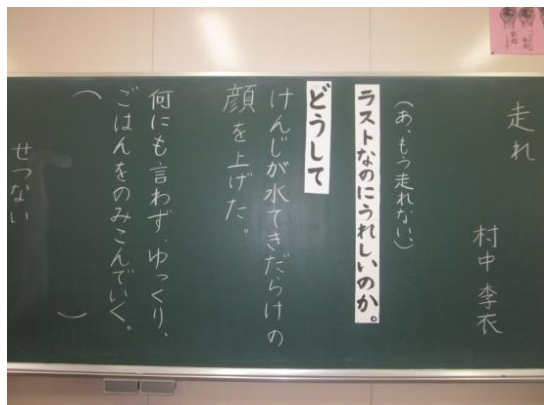 走れ
村中李衣
ラストなのにうれしいのか。
（あ、もう走れない）
どうして
けんじが水てきだらけの
顔を上げた。
何にも言わず、ゆっくり、
ごはんをのみこんでいく。
（　　　）
せつない